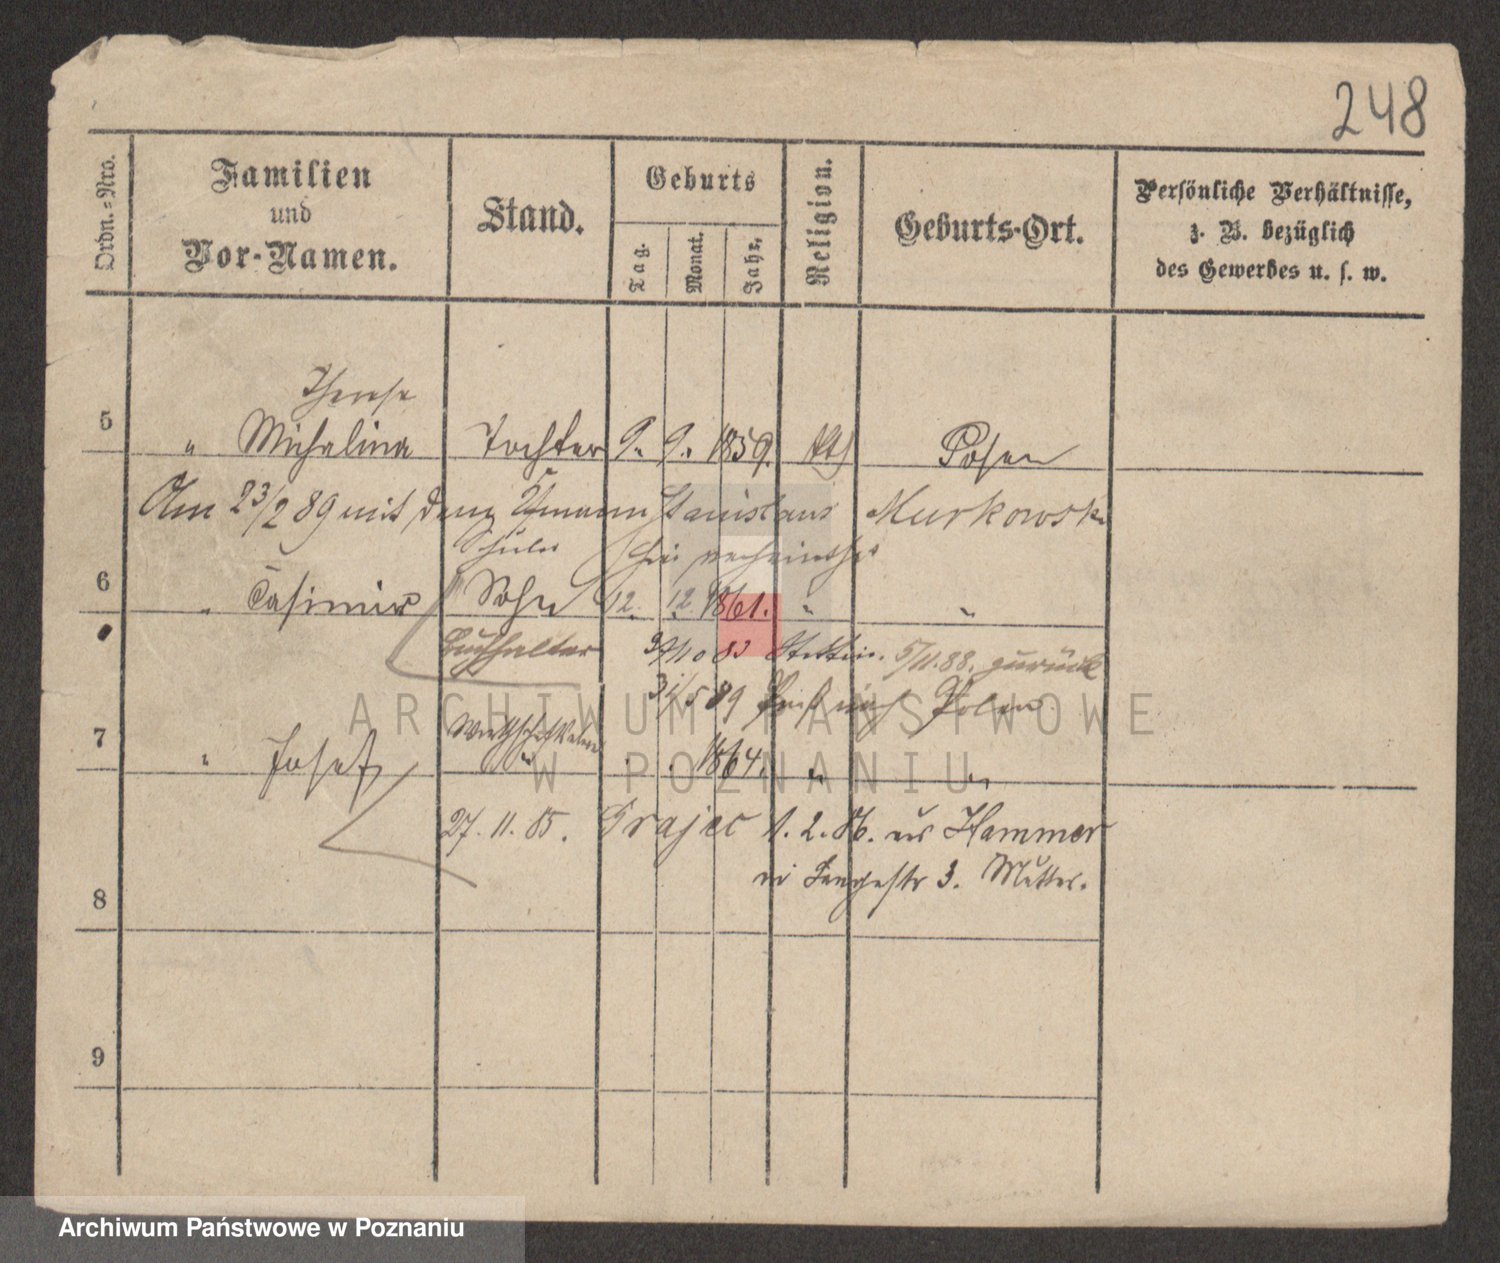 248
Ordn.-Nro.
Familien
und
Vor-Namen.
Stand.
Geburts
Tag.
Monat.
Jahr.
Religion.
Geburts-Ort.
Persönliche Verhältnisse,
z. B. bezüglich
des Gewerbes u. s. w.
Therese
5 " Michalina Tochter 9. 9. 1859. kth Posen
Am 23/2 89 mit dem Stanislaus Murkowski
Schüler hier verheirathet
6 " Casimir Sohn 12. 12. 1861. " "
Buchhalter 83 Stettin. 5/11. 88. zurück
31/5 89 nach Polen
7 " Josef " . . 1864. " "
27. 11. 85. Grajec 1. 2. 86. aus Hammer
Langestr 3. Mutter.
8
9
ARCHIWUM PAŃSTWOWE
W POZNANIU
Archiwum Państwowe w Poznaniu